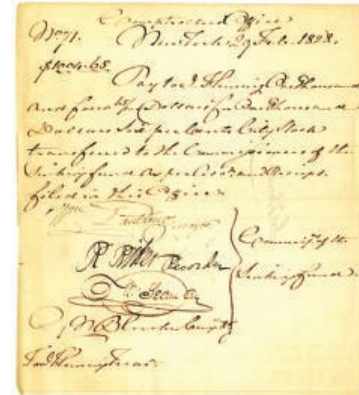 Comptrollers Office
No. 71. New York 29 Feb. 1828.
$1004.65
Pay to J. Fleming One Thousand
and four 65/100 Dollars for One Thousand
Dollars Six per Cents City Stock
transferred to the Commissioners of the
Sinking fund as per account and Receipt
filed in this Office
Wm Paulding
R Riker Recorder
Commissrs of the
Sinking Fund
Fleming Treasr